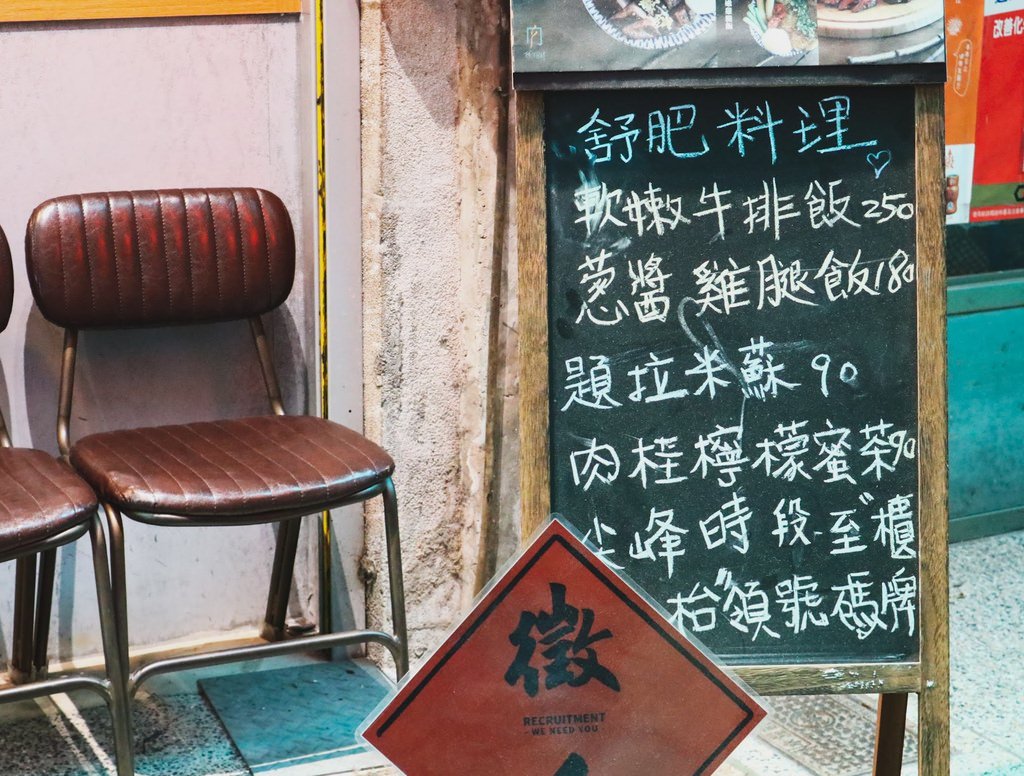 舒肥料理♡
軟嫩牛排飯250
蔥醬雞腿飯180
題拉米蘇 90
肉桂檸檬蜜茶90
尖峰時段至"櫃
枱"領號碼牌
徵
RECRUITMENT
- WE NEED YOU -
改善化